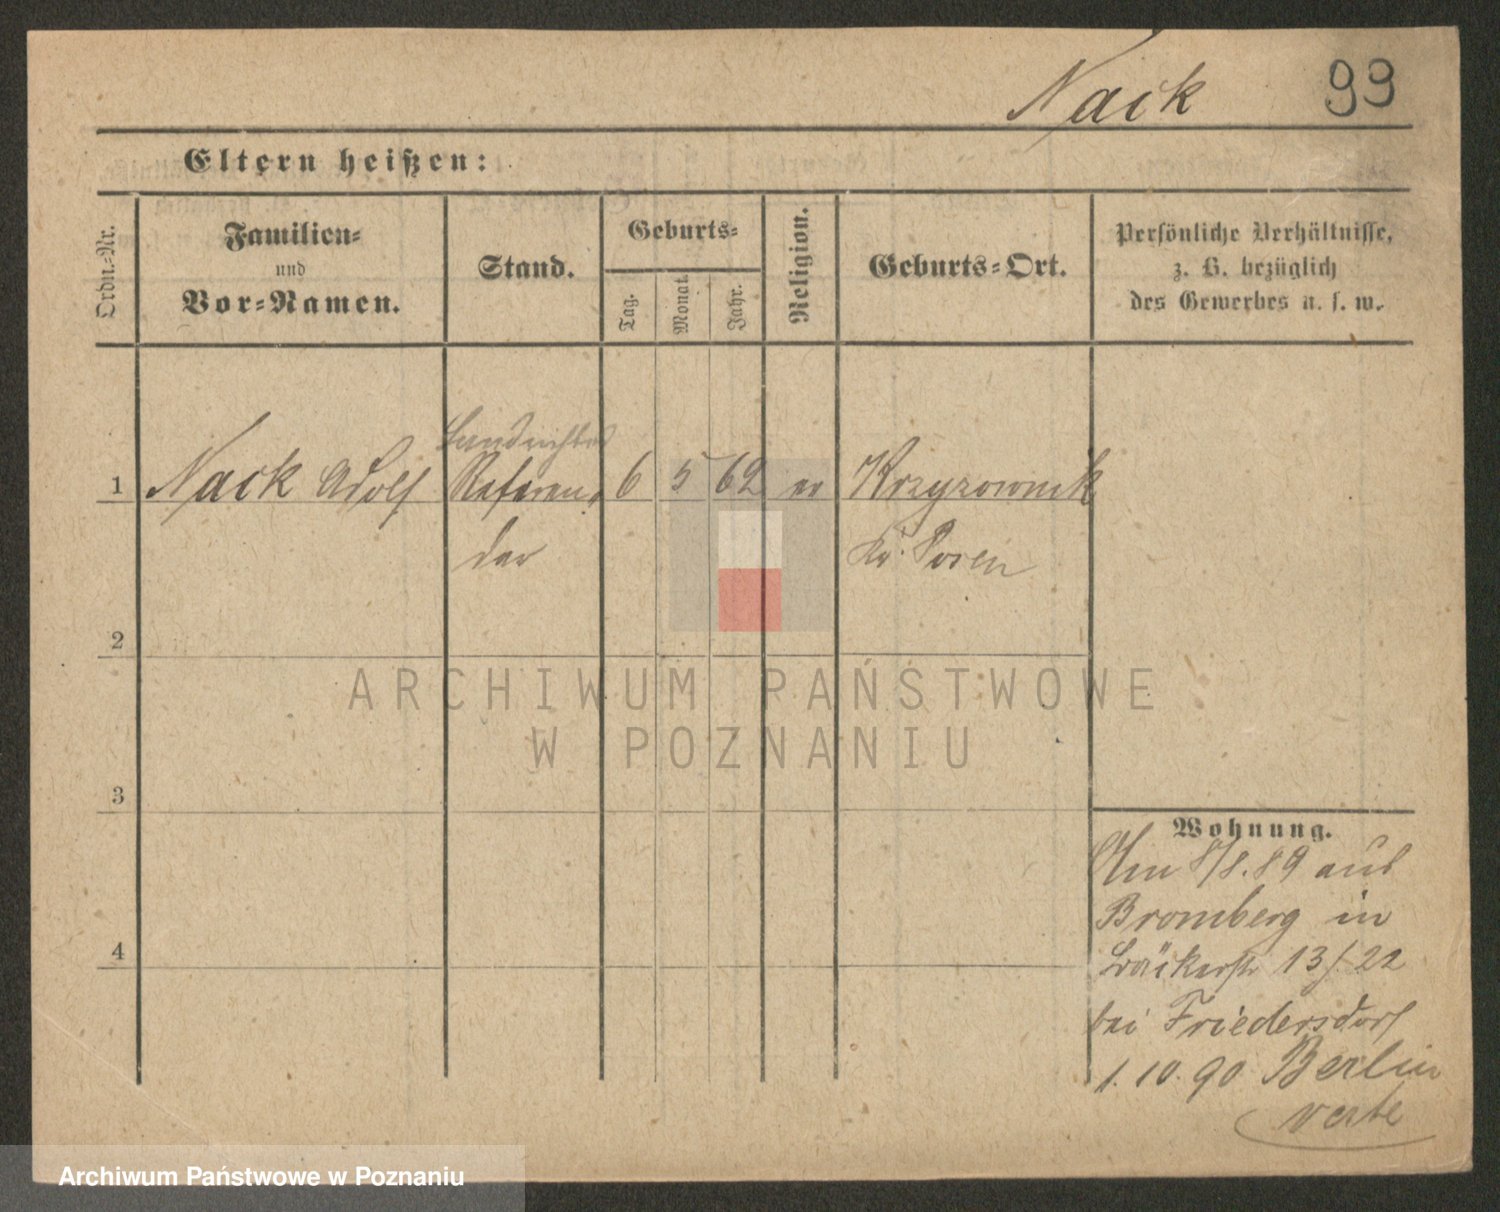 Nack 99
Eltern heißen:
Ordn.-Nr.
Familien-
und
Vor-Namen.
Stand.
Geburts-
Tag.
Monat.
Jahr.
Religion.
Geburts-Ort.
Persönliche Verhältnisse,
z. B. bezüglich
des Gewerbes u. s. w.
Landrichter
1 Nack Adolf Referen- 6 5 62 ev Krzyzownik
dar Kr. Posen
2
3
4
Wohnung.
Am 8/8.89 aus
Bromberg in
Bäckerstr 13/22
bei Friedersdorf
1.10.90 Berlin
verte
ARCHIWUM PAŃSTWOWE
W POZNANIU
Archiwum Państwowe w Poznaniu